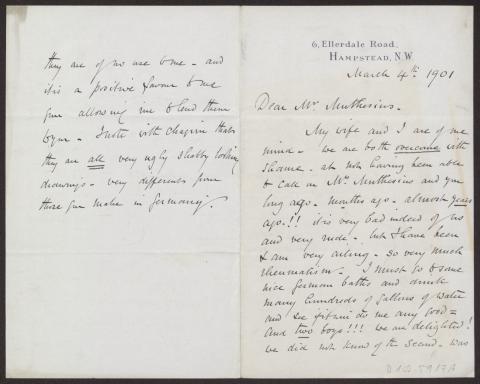 6, Ellerdale Road,
Hampstead, N.W.
March 4th 1901
Dear Mr. Muthesius.
My wife and I are of one
mind - we are both overcome with
shame - at not having been able
to call on Mrs. Muthesius and you
long ago - months ago - almost years
ago.!! it is very bad indeed of us
and very rude - but I have been
& am very ailing - so very much
rheumatism - I must go to some
nice German baths and drink
many hundreds of gallons of water
and see if it will do me any good -
And two boys!!! we are delighted!
we did not know of the second - was
they are of no use to me - and
it is a positive favour to me
your allowing me to lend them
to you - I note with chagrin that
they are all very ugly shabby looking
drawings - very different from
those you make in Germany